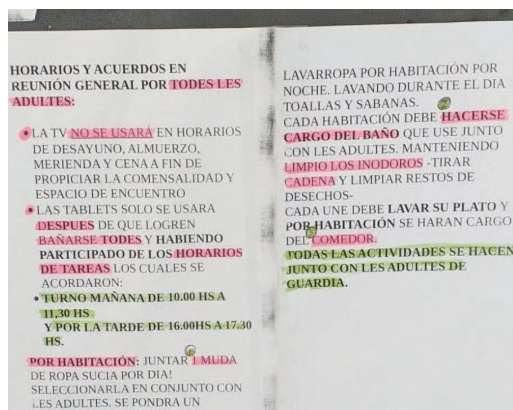 HORARIOS Y ACUERDOS EN
REUNIÓN GENERAL POR TODES LES
ADULTES:
• LA TV NO SE USARÁ EN HORARIOS
DE DESAYUNO, ALMUERZO,
MERIENDA Y CENA A FIN DE
PROPICIAR LA COMENSALIDAD Y
ESPACIO DE ENCUENTRO
• LAS TABLETS SOLO SE USARA
DESPUES DE QUE LOGREN
BAÑARSE TODES Y HABIENDO
PARTICIPADO DE LOS HORARIOS
DE TAREAS LOS CUALES SE
ACORDARON:
• TURNO MAÑANA DE 10.00 HS A
11,30 HS
Y POR LA TARDE DE 16.00HS A 17.30
HS.
POR HABITACIÓN: JUNTAR 1 MUDA
DE ROPA SUCIA POR DIA!
SELECCIONARLA EN CONJUNTO CON
LES ADULTES. SE PONDRA UN
LAVARROPA POR HABITACIÓN POR
NOCHE. LAVANDO DURANTE EL DIA
TOALLAS Y SABANAS.
CADA HABITACIÓN DEBE HACERSE
CARGO DEL BAÑO QUE USE JUNTO
CON LES ADULTES. MANTENIENDO
LIMPIO LOS INODOROS -TIRAR
CADENA Y LIMPIAR RESTOS DE
DESECHOS-
CADA UNE DEBE LAVAR SU PLATO Y
POR HABITACIÓN SE HARAN CARGO
DEL COMEDOR.
TODAS LAS ACTIVIDADES SE HACEN
JUNTO CON LES ADULTES DE
GUARDIA.